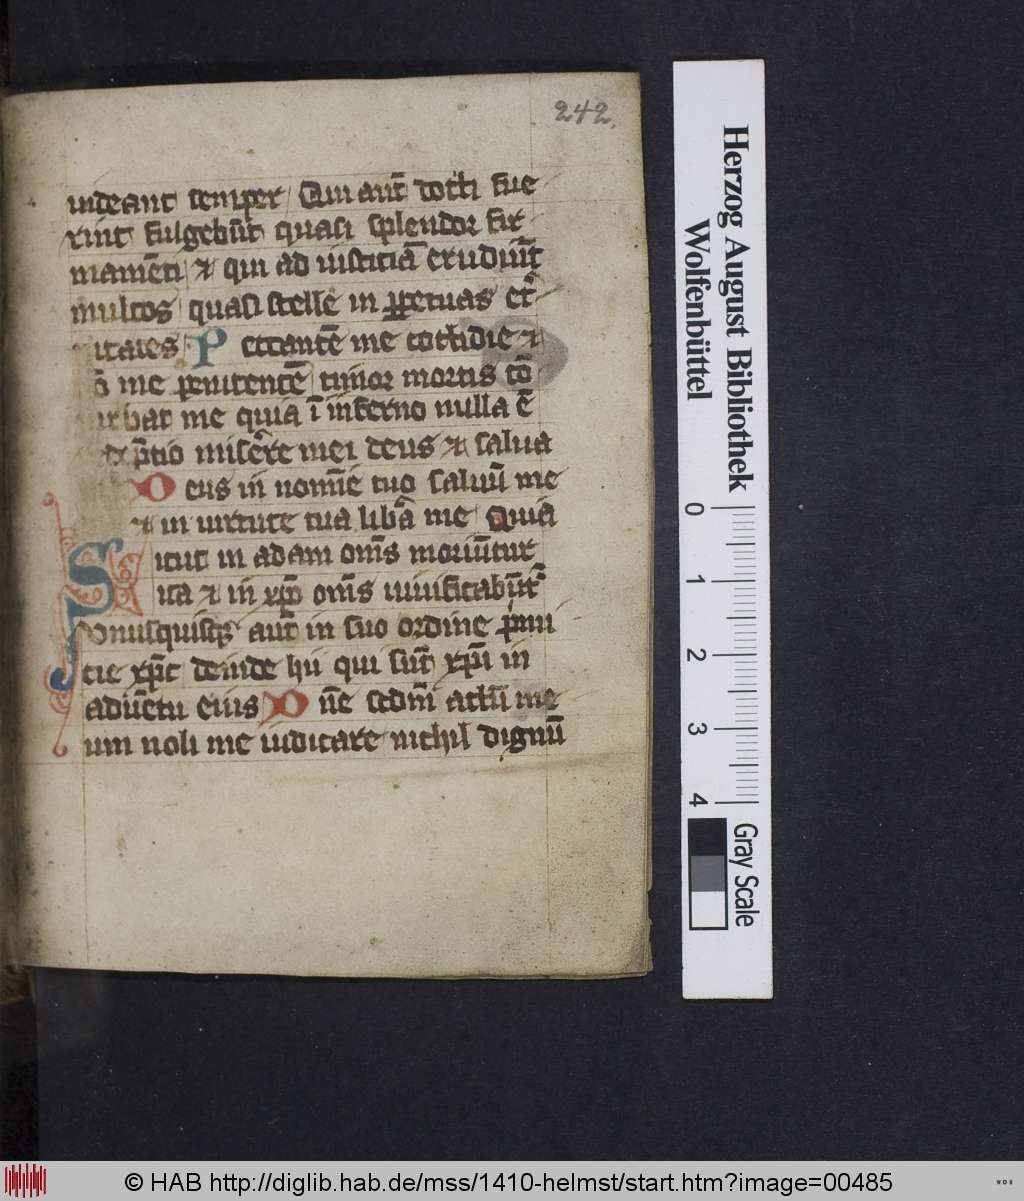 242.
uideant semper Qui aut̄ docti fue
rint fulgebūt quasi splendor fir
mamēti et qui ad iusticiā erudiūt
multos quasi stelle in ꝑpetuas et̾
nitates Peccantē me cottidie et
nō me penitentē timor mortis cō
turbat me quia ī inferno nulla ē
redēp̄tio miserere mei deus et salua
me Deus in nomīe tuo saluū me
et in uirtute tua libā me Quia
Sicut in adam om̄s moriūtur
ita et in xp̄o om̄s uiuificabūt̾
Vnusquisqꝫ aut̄ in suo ordine pͥmi
cie xp̄c deinde hii qui sūt xp̄i in
aduētu eius Dn̄e scd̄m actū me
um noli me iudicare nichil dignū
Herzog August Bibliothek
Wolfenbüttel
0 1 2 3 4
Gray Scale
© HAB http://diglib.hab.de/mss/1410-helmst/start.htm?image=00485